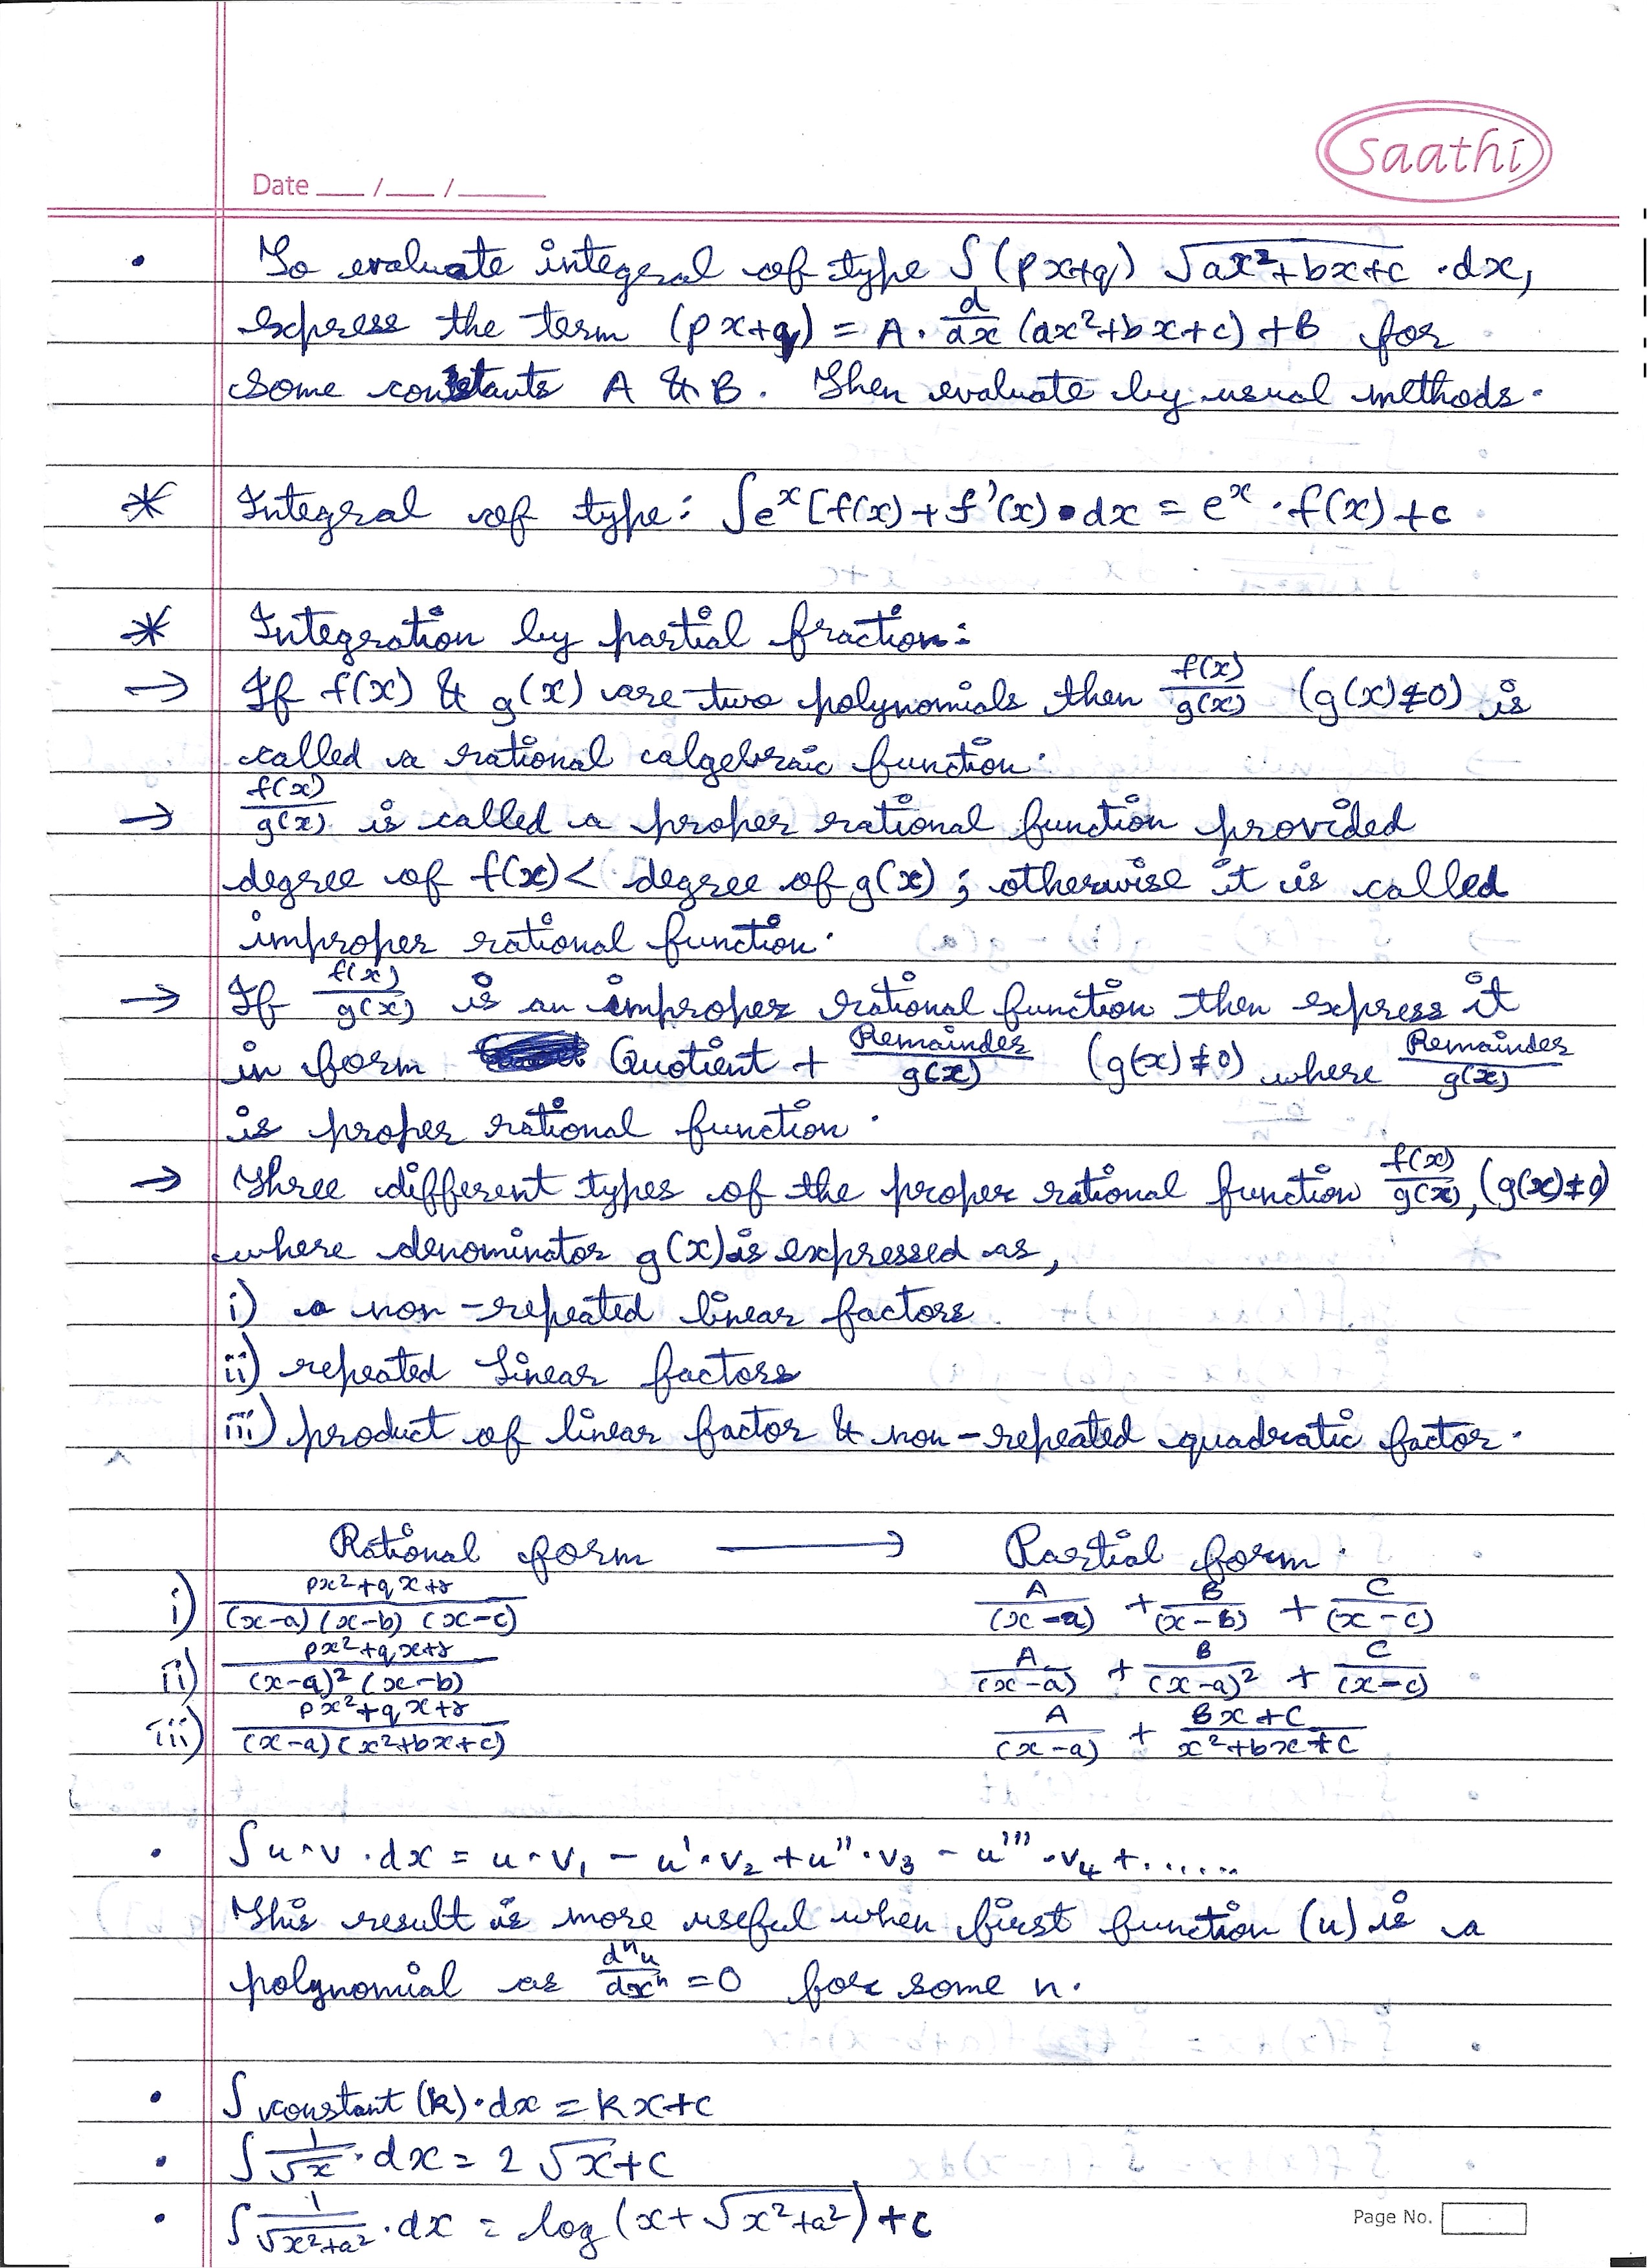 saathi
Date ___ / ___ / _____
• To evaluate integral of type ∫(px+q) √ax²+bx+c · dx,
express the term (px+q) = A · d/dx (ax²+bx+c) + B for
some constants A & B. Then evaluate by usual methods.
* Integral of type: ∫e^x [f(x) + f'(x) · dx = e^x · f(x) + c
* Integration by partial fraction:
→ If f(x) & g(x) are two polynomials then f(x)/g(x) (g(x)≠0) is
called a rational algebraic function.
→ f(x)/g(x) is called a proper rational function provided
degree of f(x) < degree of g(x) ; otherwise it is called
improper rational function.
→ If f(x)/g(x) is an improper rational function then express it
in form Quotient + Remainder/g(x) (g(x)≠0) where Remainder/g(x)
is proper rational function.
→ Three different types of the proper rational function f(x)/g(x), (g(x)≠0)
where denominator g(x) is expressed as,
i) a non-repeated linear factors
ii) repeated linear factors
iii) product of linear factor & non-repeated quadratic factor.
Rational form ⟶ Partial form.
i) px²+qx+r/(x-a)(x-b)(x-c) A/(x-a) + B/(x-b) + C/(x-c)
ii) px²+qx+r/(x-a)²(x-b) A/(x-a) + B/(x-a)² + C/(x-c)
iii) px²+qx+r/(x-a)(x²+bx+c) A/(x-a) + Bx+C/x²+bx+c
• ∫u·v·dx = u·v₁ - u'·v₂ + u''·v₃ - u'''·v₄ + ......
This result is more useful when first function (u) is a
polynomial as dⁿu/dxⁿ = 0 for some n.
• ∫constant (k)·dx = kx+c
• ∫1/√x · dx = 2√x + c
• ∫1/√x²+a² · dx = log(x+√x²+a²) + c
Page No.